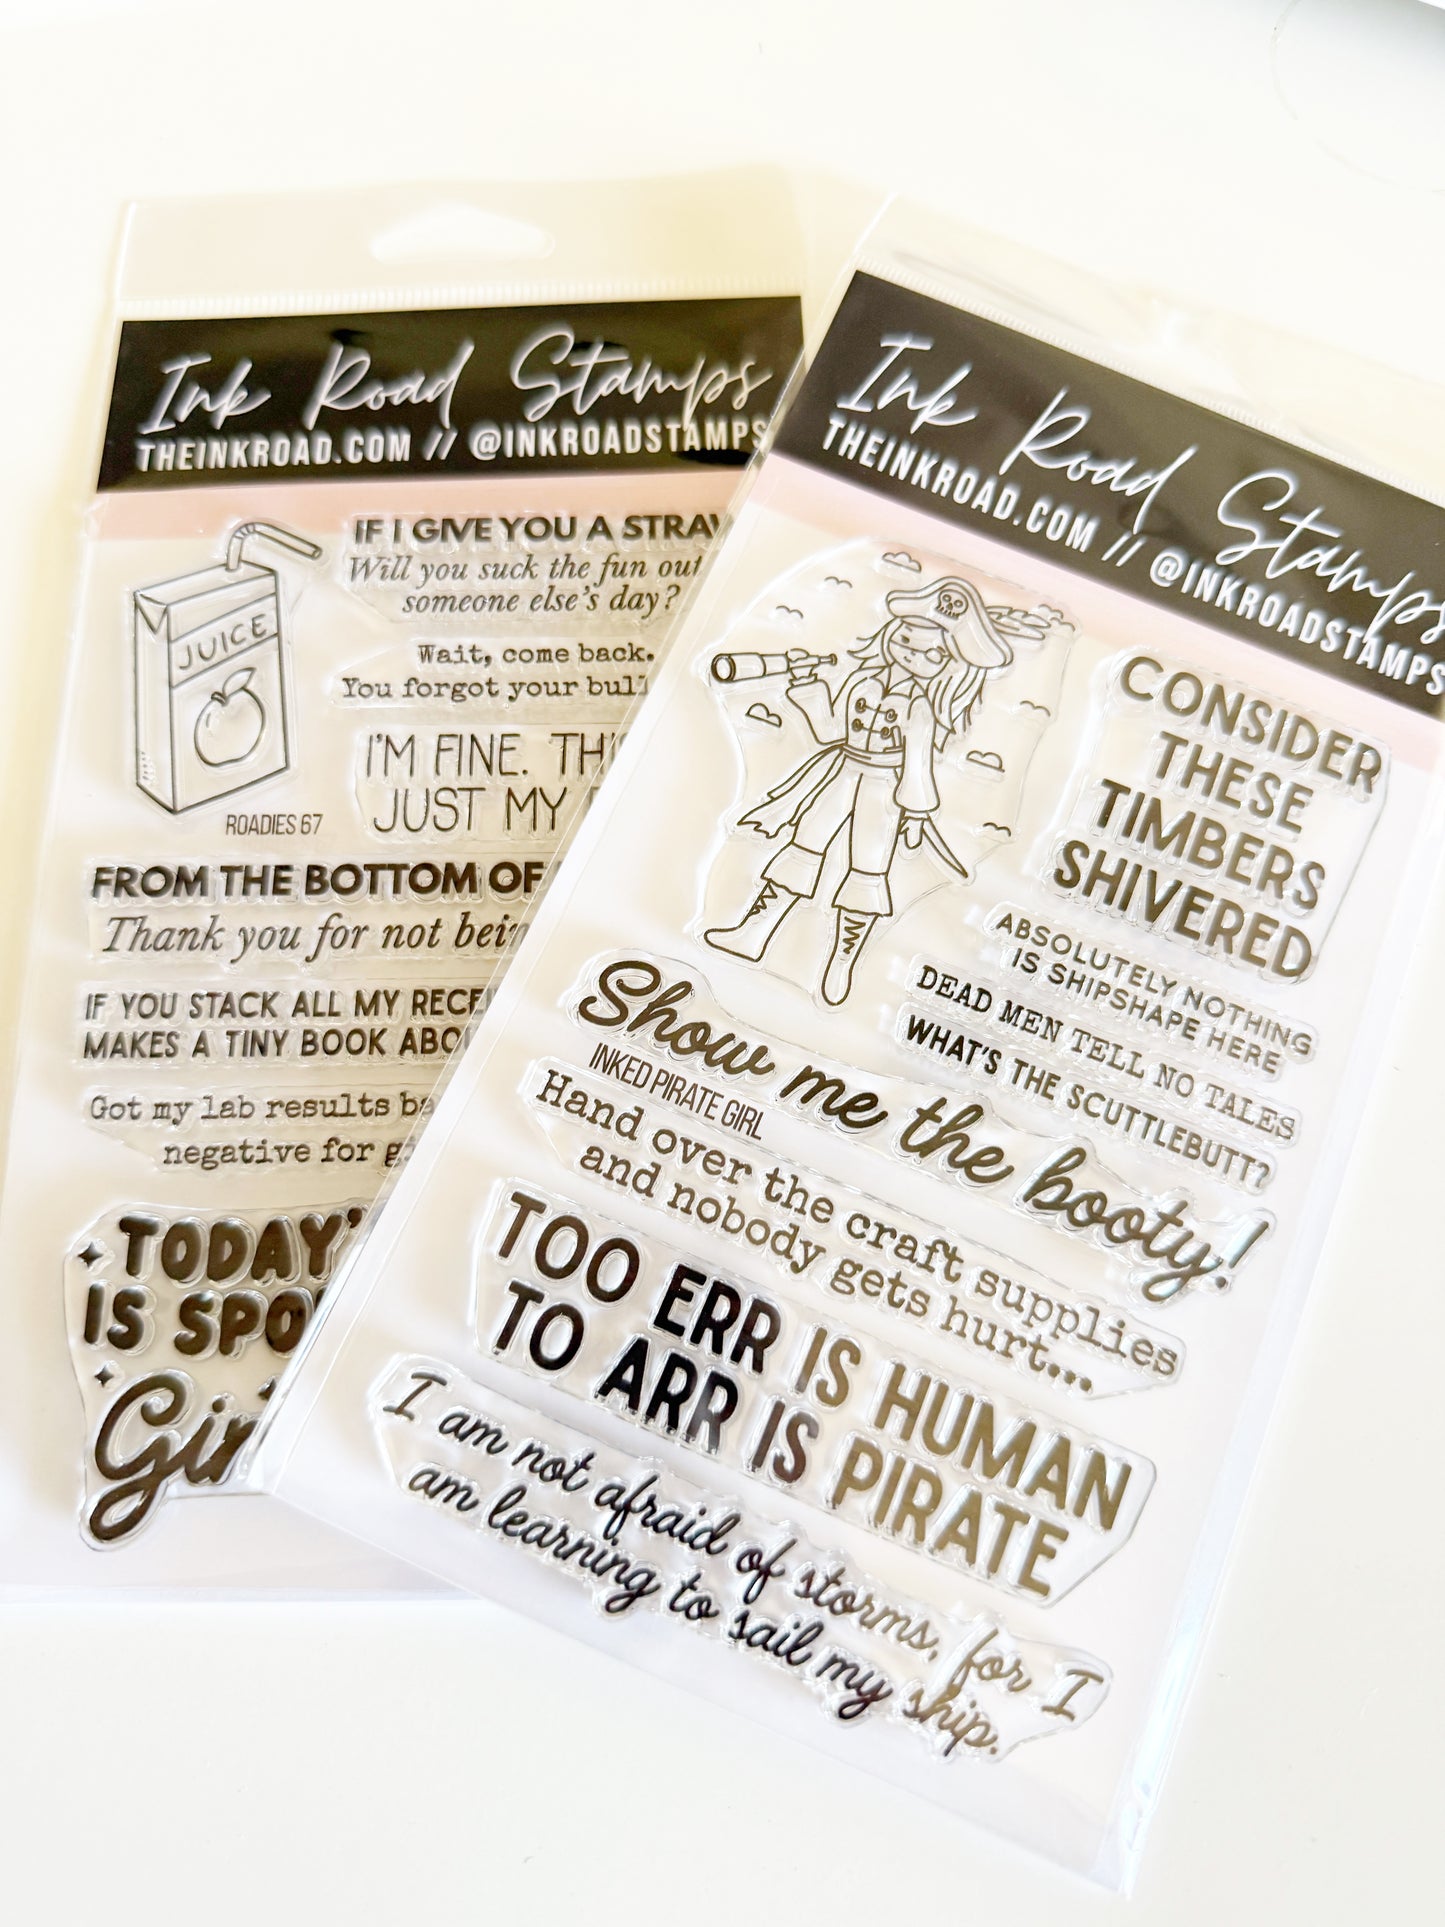 Ink Road Stamps
THEINKROAD.COM // @INKROADSTAMPS
JUICE
ROADIES 67
IF I GIVE YOU A
Will you suck the fun out
someone else's day?
Wait, come back.
You forgot your
I'M FINE.
JUST MY
FROM THE BOTTOM OF
Thank you for not
IF YOU STACK ALL MY
MAKES A TINY BOOK
Got my lab results
negative for
TODAY'
IS
Ink Road Stamps
THEINKROAD.COM // @INKROADSTAMPS
CONSIDER
THESE
TIMBERS
SHIVERED
ABSOLUTELY NOTHING
IS SHIPSHAPE HERE
DEAD MEN TELL NO TALES
WHAT'S THE SCUTTLEBUTT?
Show me the booty!
INKED PIRATE GIRL
Hand over the craft supplies
and nobody gets hurt...
TOO ERR IS HUMAN
TO ARR IS PIRATE
I am not afraid of storms, for I
am learning to sail my ship.